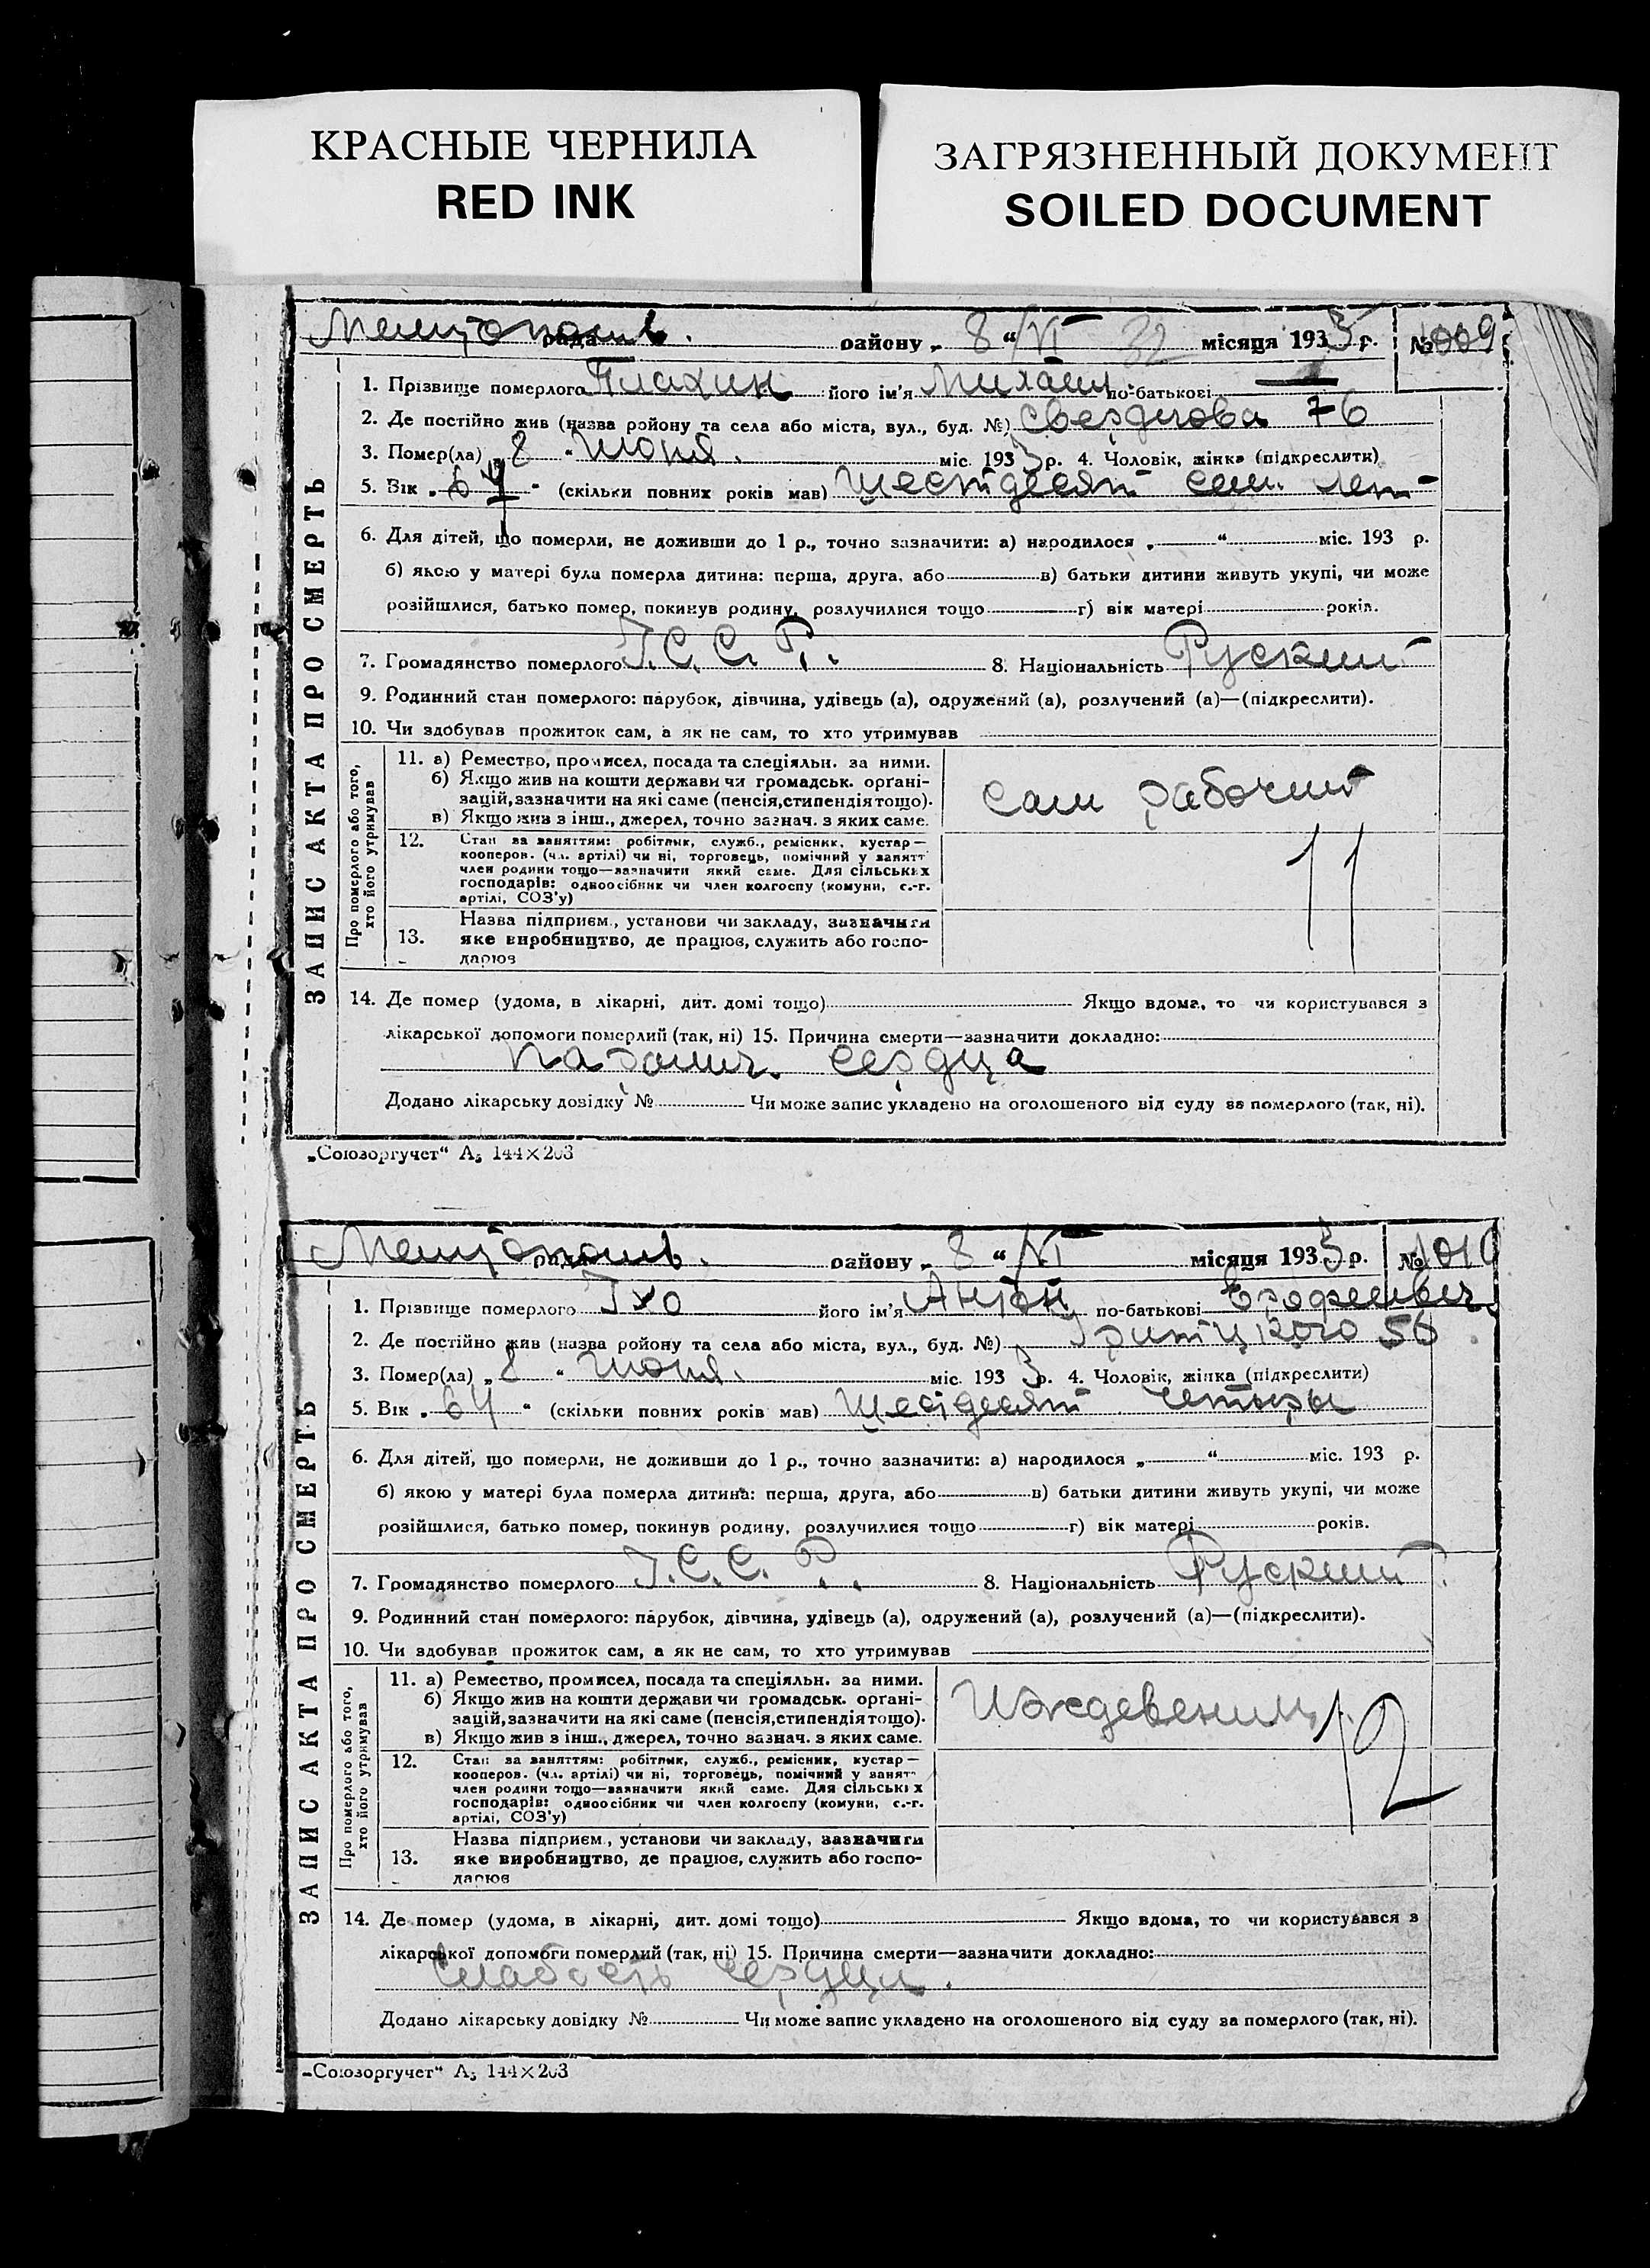 КРАСНЫЕ ЧЕРНИЛА
RED INK
ЗАГРЯЗНЕННЫЙ ДОКУМЕНТ
SOILED DOCUMENT
ЗАПИС АКТА ПРО СМЕРТЬ
рада району „ 8 “ VI 32 місяця 1933 р. № 1009
1. Прізвище померлого Плахин його ім'я Михаил по-батькові —
2. Де постійно жив (назва району та села або міста, вул., буд. №) Свердлова 76
3. Помер(ла) „ 8 “ Июня. міс. 1933 р. 4. Чоловік, жінка (підкреслити)
5. Вік „ 67 “ (скільки повних років мав) Шестдесят сем. лет
6. Для дітей, що померли, не доживши до 1 р., точно зазначити: а) народилося „ “ міс. 193 р.
б) якою у матері була померла дитина: перша, друга, або в) батьки дитини живуть укупі, чи може
розійшлися, батько помер, покинув родину, розлучилися тощо г) вік матері років.
7. Громадянство померлого У.С.С.Р. 8. Національність Руский
9. Родинний стан померлого: парубок, дівчина, удівець (а), одружений (а), розлучений (а)—(підкреслити).
10. Чи здобував прожиток сам, а як не сам, то хто утримував
Про померлого або того, хто його утримував
11. а) Ремество, промисел, посада та спеціяльн. за ними.
б) Якщо жив на кошти держави чи громадськ. орґані-
зацій, зазначити на які саме (пенсія, стипендія тощо).
в) Якщо жив з інш., джерел, точно зазнач. з яких саме.
сам рабочий
12. Стан за заняттям: робітник, служб., ремісник, кустар—
кооперов. (чл. артілі) чи ні, торговець, помічний у занятт
член родини тощо—зазначити який саме. Для сільських
господарів: одноосібник чи член колгоспу (комуни, с.-г.
артілі, СОЗ'у)
11
13. Назва підприєм., установи чи закладу, зазначити
яке виробництво, де працює, служить або госпо-
дарює
14. Де помер (удома, в лікарні, дит. домі тощо) Якщо вдома, то чи користувався з
лікарської допомоги померлий (так, ні) 15. Причина смерти—зазначити докладно:
паралич. сердца
Додано лікарську довідку № Чи може запис укладено на оголошеного від суду за померлого (так, ні).
„Союзоргучет“ А₅ 144×203
ЗАПИС АКТА ПРО СМЕРТЬ
рада району „ 8 “ VI місяця 1933 р. № 1010
1. Прізвище померлого його ім'я Антон по-батькові Ерофеевич
2. Де постійно жив (назва району та села або міста, вул., буд. №) Урицкого 56
3. Помер(ла) „ 8 “ Июня. міс. 1933 р. 4. Чоловік, жінка (підкреслити)
5. Вік „ 64 “ (скільки повних років мав) Шестдесят четыры
6. Для дітей, що померли, не доживши до 1 р., точно зазначити: а) народилося „ “ міс. 193 р.
б) якою у матері була померла дитина: перша, друга, або в) батьки дитини живуть укупі, чи може
розійшлися, батько помер, покинув родину, розлучилися тощо г) вік матері років.
7. Громадянство померлого У.С.С.Р. 8. Національність Руский
9. Родинний стан померлого: парубок, дівчина, удівець (а), одружений (а), розлучений (а)—(підкреслити).
10. Чи здобував прожиток сам, а як не сам, то хто утримував
Про померлого або того, хто його утримував
11. а) Ремество, промисел, посада та спеціяльн. за ними.
б) Якщо жив на кошти держави чи громадськ. орґані-
зацій, зазначити на які саме (пенсія, стипендія тощо).
в) Якщо жив з інш., джерел, точно зазнач. з яких саме.
Иждевениц
12. Стан за заняттям: робітник, служб., ремісник, кустар—
кооперов. (чл. артілі) чи ні, торговець, помічний у занят
член родини тощо—зазначити який саме. Для сільських
господарів: одноосібник чи член колгоспу (комуни, с.-г.
артілі, СОЗ'у)
12
13. Назва підприєм., установи чи закладу, зазначити
яке виробництво, де працює, служить або госпо-
дарює
14. Де помер (удома, в лікарні, дит. домі тощо) Якщо вдома, то чи користувався з
лікарської допомоги померлий (так, ні) 15. Причина смерти—зазначити докладно:
Слабость сердца.
Додано лікарську довідку № Чи може запис укладено на оголошеного від суду за померлого (так, ні).
„Союзоргучет“ А₅ 144×203